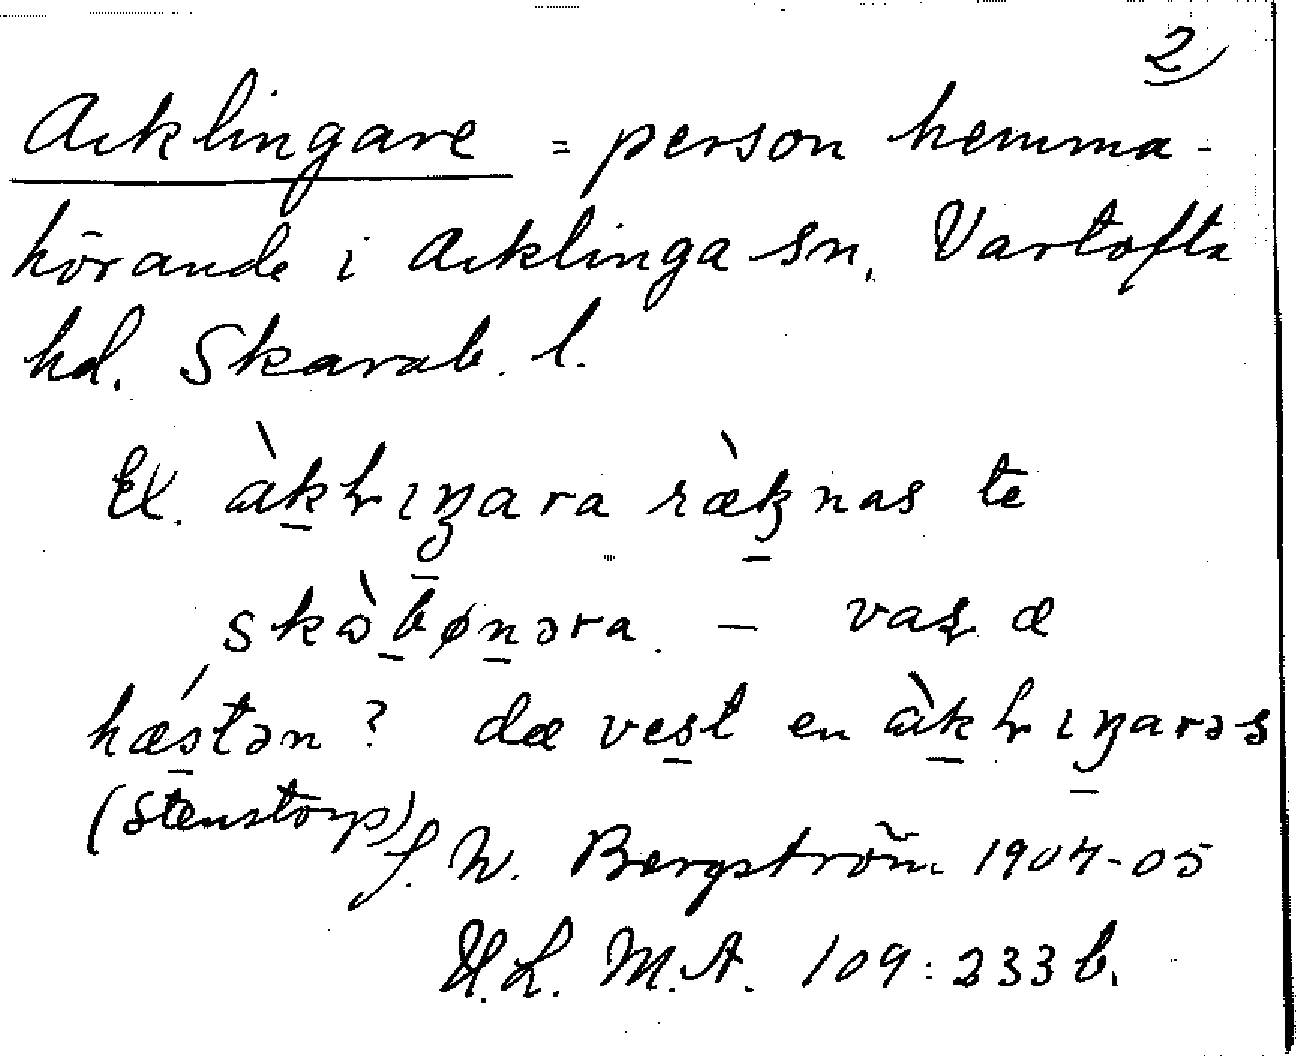 2)
Acklingare = person hemma-
hörande i Acklinga sn, Vartofta
hd. Skarab. l.
Ex. àkḷıŋara ræ̀knas te
skàbønəra. – vaṣ æ
hǽstən? dæ vest en àkḷıŋarəs
(Stenstorp)
J. W. Bergström 1904-05
U.L. M.A. 109:233 b.